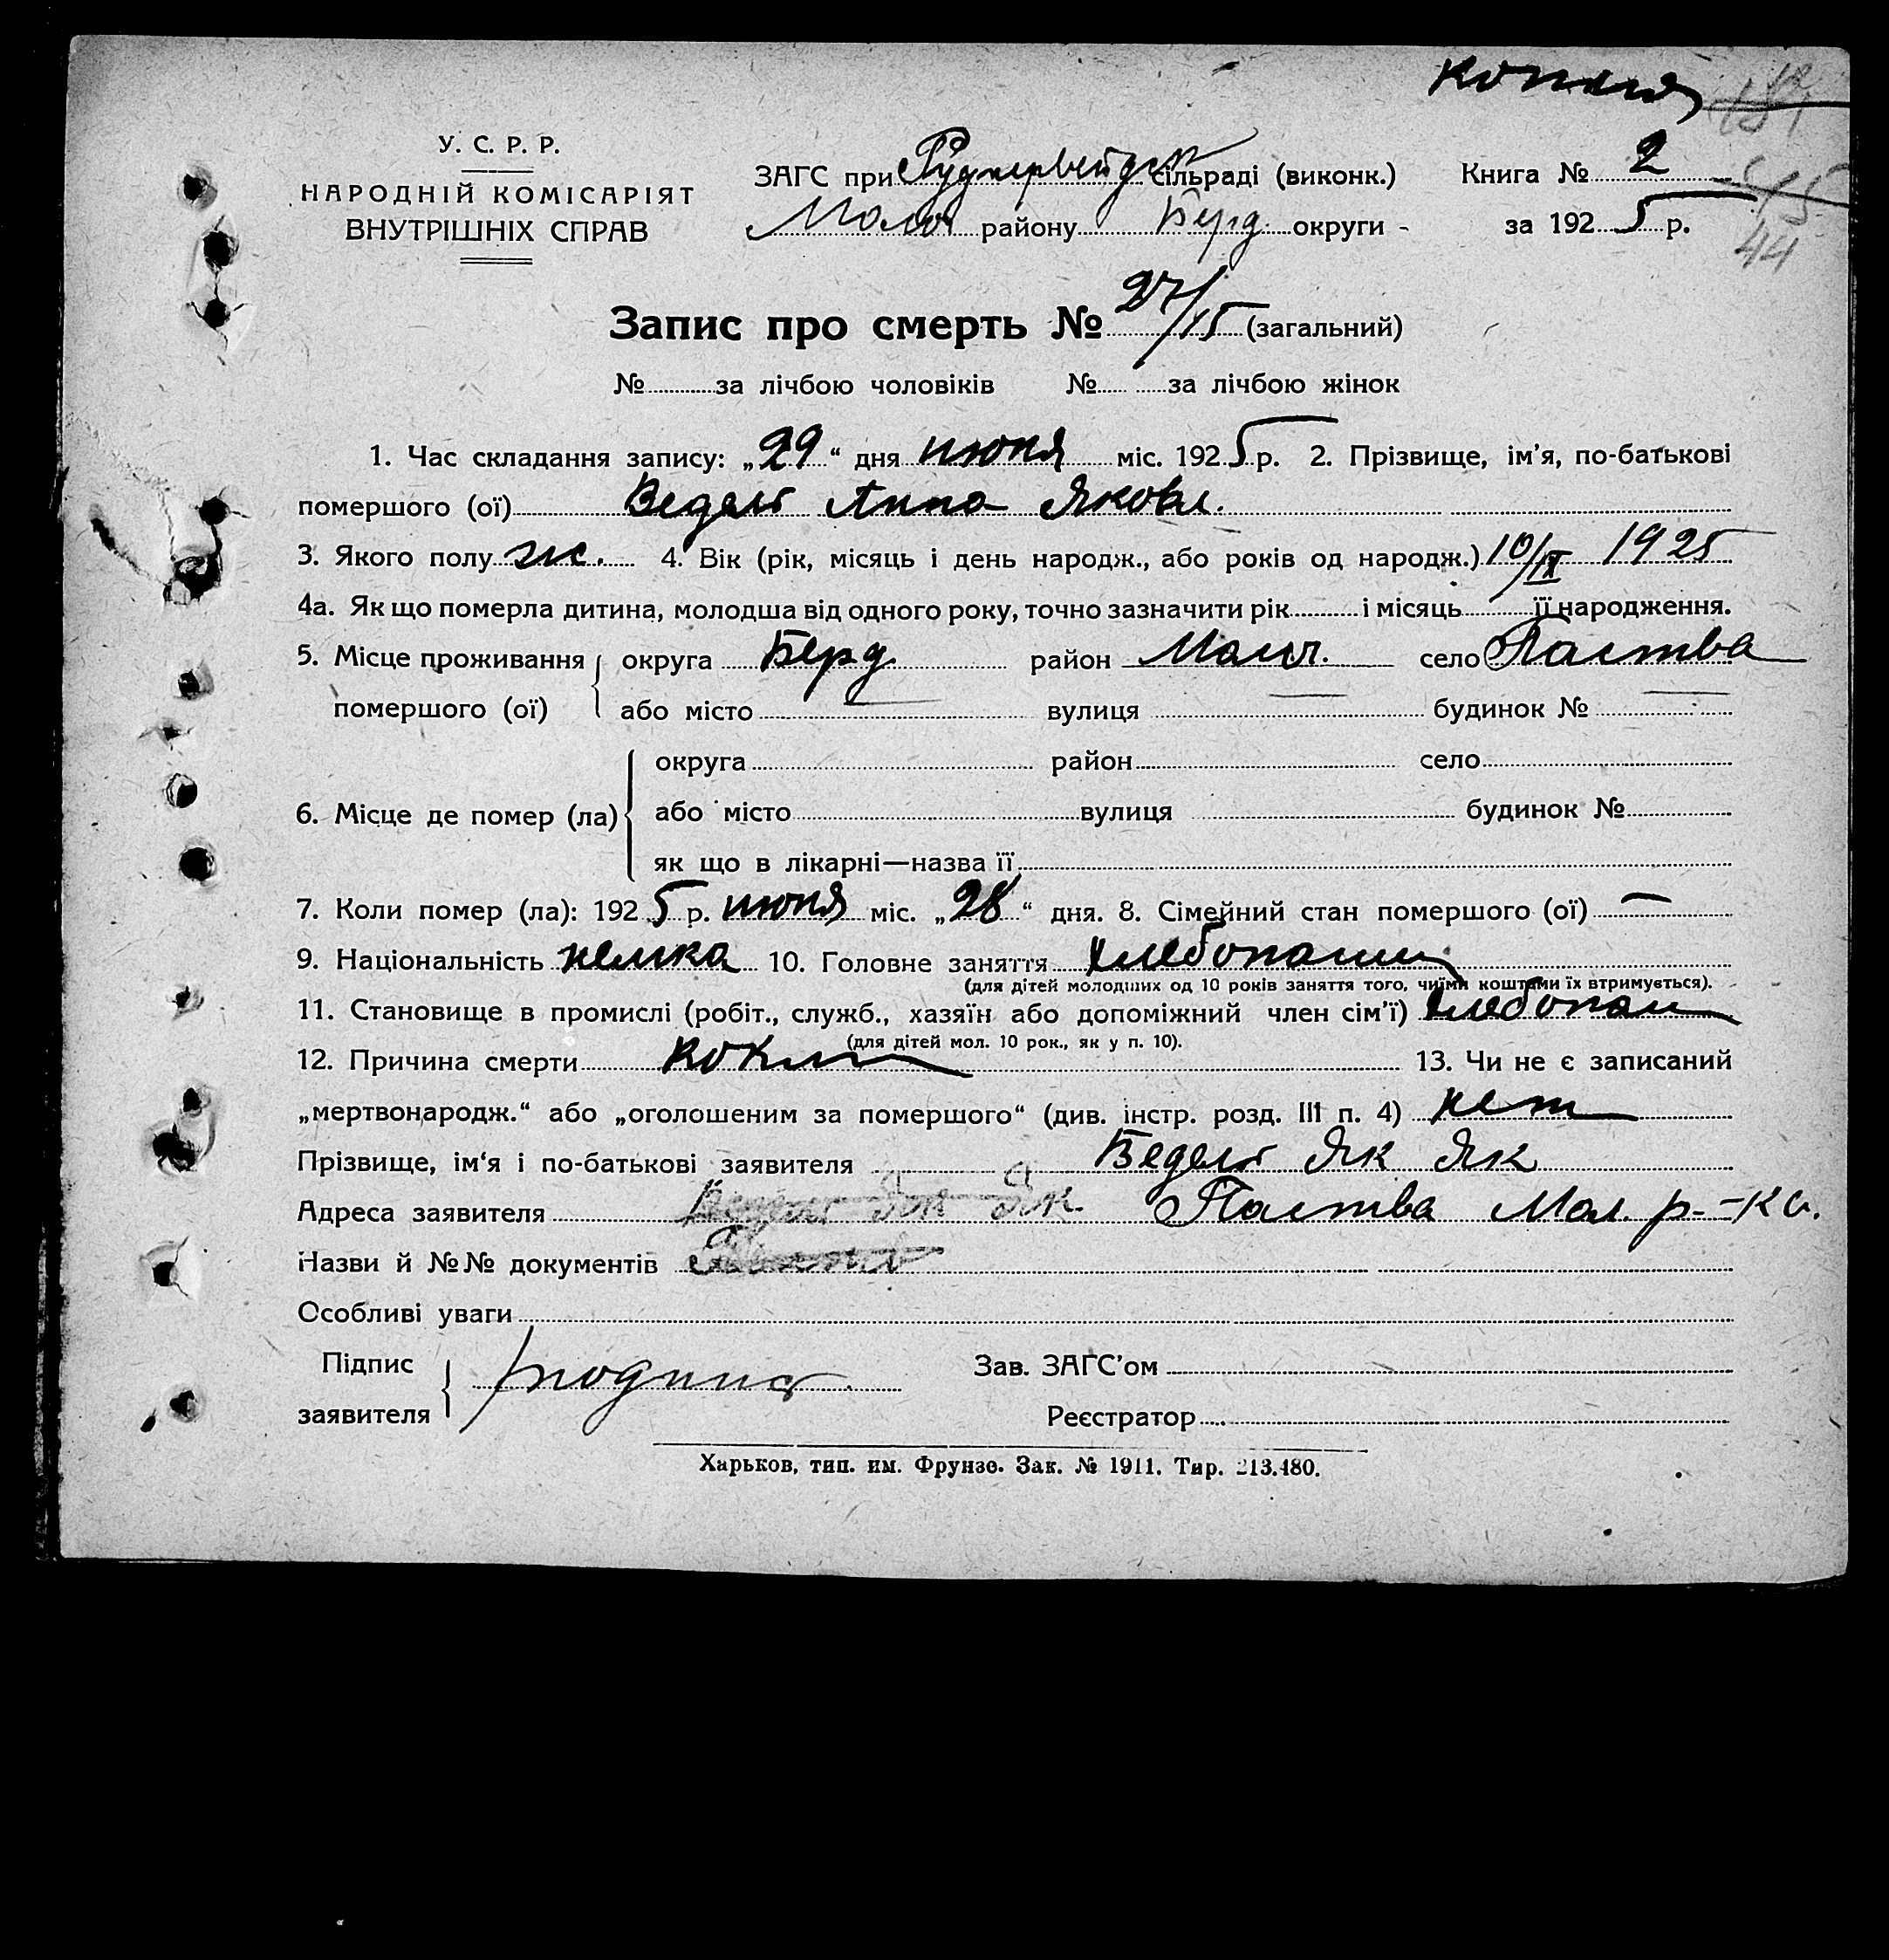 копия
У. С. Р. Р.
НАРОДНІЙ КОМІСАРІЯТ
ВНУТРІШНІХ СПРАВ
ЗАГС при Рудмервейдск сільраді (виконк.) Книга № 2
Молоч району Берд. округи за 1925 р.
44
Запис про смерть № 27/15 (загальний)
№ за лічбою чоловіків № за лічбою жінок
1. Час складання запису: „29“ дня июня міс. 1925 р. 2. Прізвище, ім'я, по-батькові
помершого (ої) Ведель Анна Яковл.
3. Якого полу ж. 4. Вік (рік, місяць і день народж., або років од народж.) 10/IX 1925
4а. Як що померла дитина, молодша від одного року, точно зазначити рік і місяць її народження.
5. Місце проживання помершого (ої) округа Берд район Молч. село Паства
або місто — вулиця — будинок № —
6. Місце де помер (ла) округа район село
або місто вулиця будинок №
як що в лікарні—назва її
7. Коли помер (ла): 1925 р. июня міс. „28“ дня. 8. Сімейний стан помершого (ої) —
9. Національність немка 10. Головне заняття хлебопаш
(для дітей молодших од 10 років заняття того, чиїми коштами їх втримується).
11. Становище в промислі (робіт., служб., хазяїн або допоміжний член сім'ї) хлебопаш
(для дітей мол. 10 рок., як у п. 10).
12. Причина смерти кокл 13. Чи не є записаний
„мертвонародж.“ або „оголошеним за помершого“ (див. інстр. розд. III п. 4) нет
Прізвище, ім'я і по-батькові заявителя Ведель Як Як
Адреса заявителя Ведель Як Як. Паства Мол. р-ка.
Назви й №№ документів
Особливі уваги
Підпис заявителя подпись Зав. ЗАГС'ом
Реєстратор
Харьков, тип. им. Фрунзе. Зак. № 1911. Тир. 213.480.